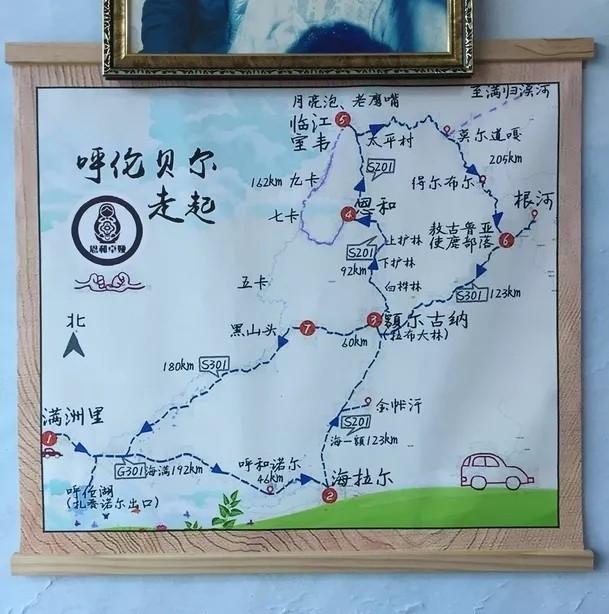 月亮泡、老鹰嘴
至满归漠河
临江
室韦
5
太平村
莫尔道嘎
呼伦贝尔
走起
S201
205km
162km
九卡
得尔布尔
根河
七卡
4
恩和
敖古鲁亚
使鹿部落
6
恩和卓娅
上护林
S201
92km
下护林
五卡
白桦林
S301
123km
北
黑山头
7
3
额尔古纳
(拉布大林)
60km
180km
S301
金帐汗
满洲里
S201
1
海一额123km
G301
海满192km
呼和诺尔
46km
海拉尔
2
呼伦湖
(扎赉诺尔出口)